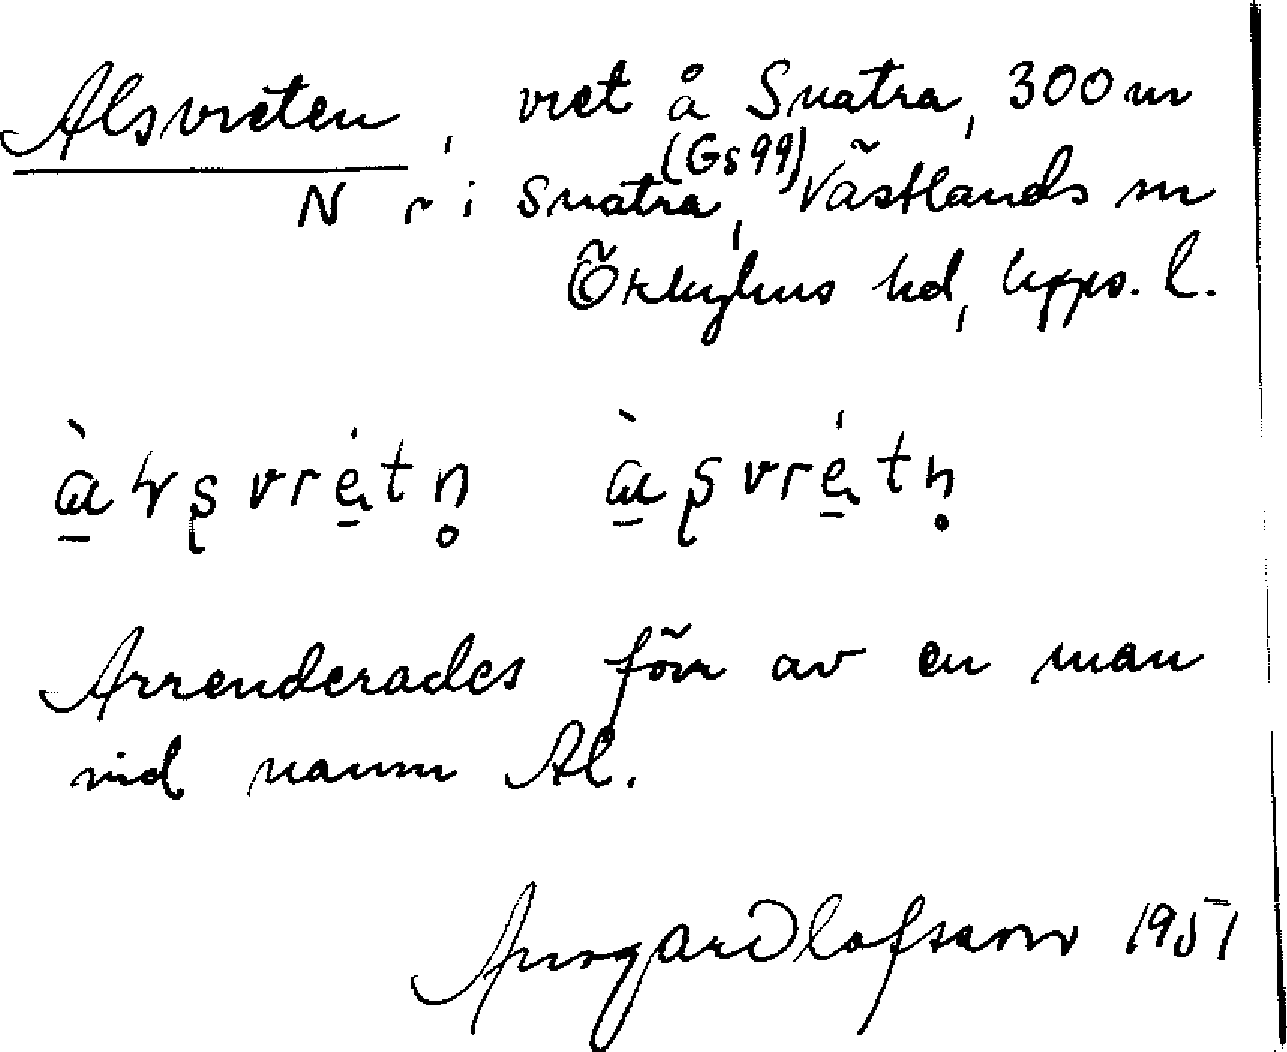 Alsvreten, vret å Snatra, 300 m
N r i Snatra (Gs 99), Västlands sn
Örbyhus hd, Upps. l.
Arrenderades förr av en man
vid namn Al.
Ansgar Olofsson 1951